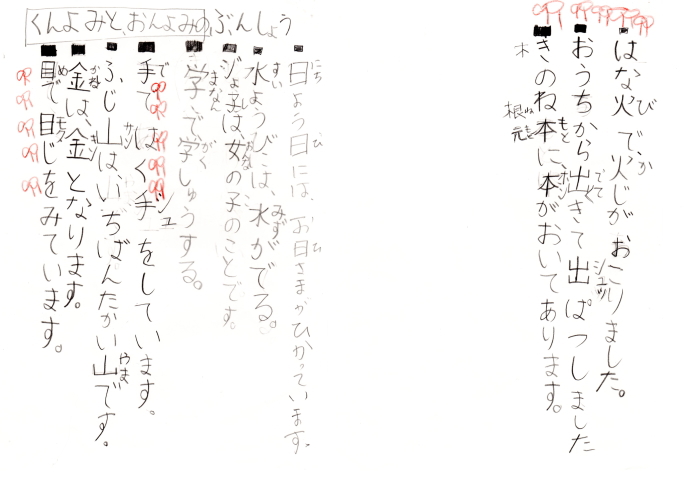 くんよみと、おんよみのぶんしょう
日よう日には、お日さまがひかっています。
にち び ひ
水ようびには、水がでる。
すい みず
ジょ子は、女の子のことです。
おんな
学で学しゅうする。
まなん がく
手で はく手をしています。
で シュ
ふじ山は、いちばんたかい山です。
サン やま
金は、金となります。
かね キン
目で目じをみています。
め もく
はな火で、火じがおこりました。
び か
おうちから出きて出ぱつしました
でて シュッ
きのね本に、本がおいてあります。
もと ホン
木
根ね元もと